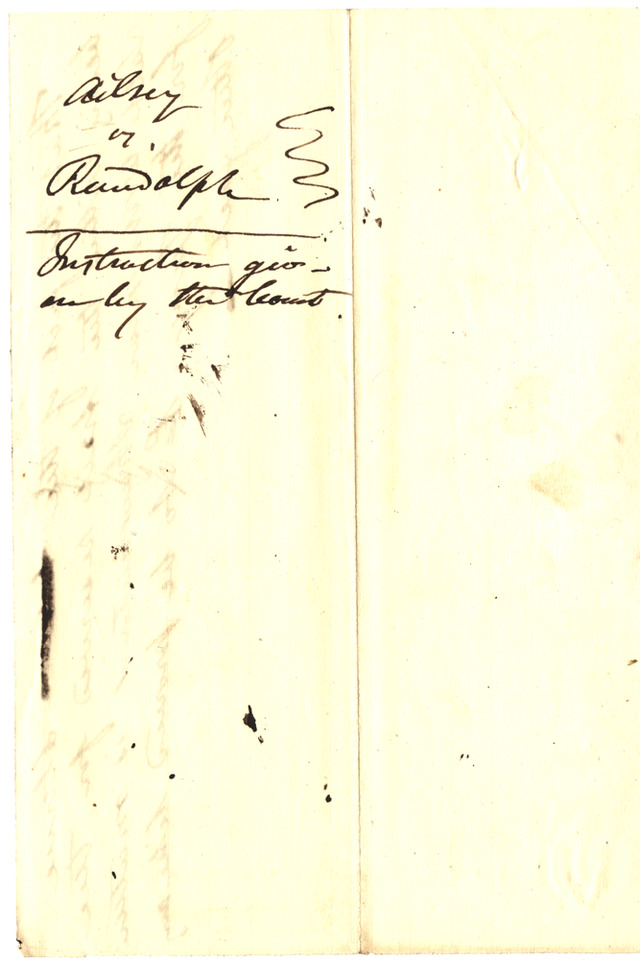 Ailsey
vs.
Randolph
Instruction giv-
en by the Court.